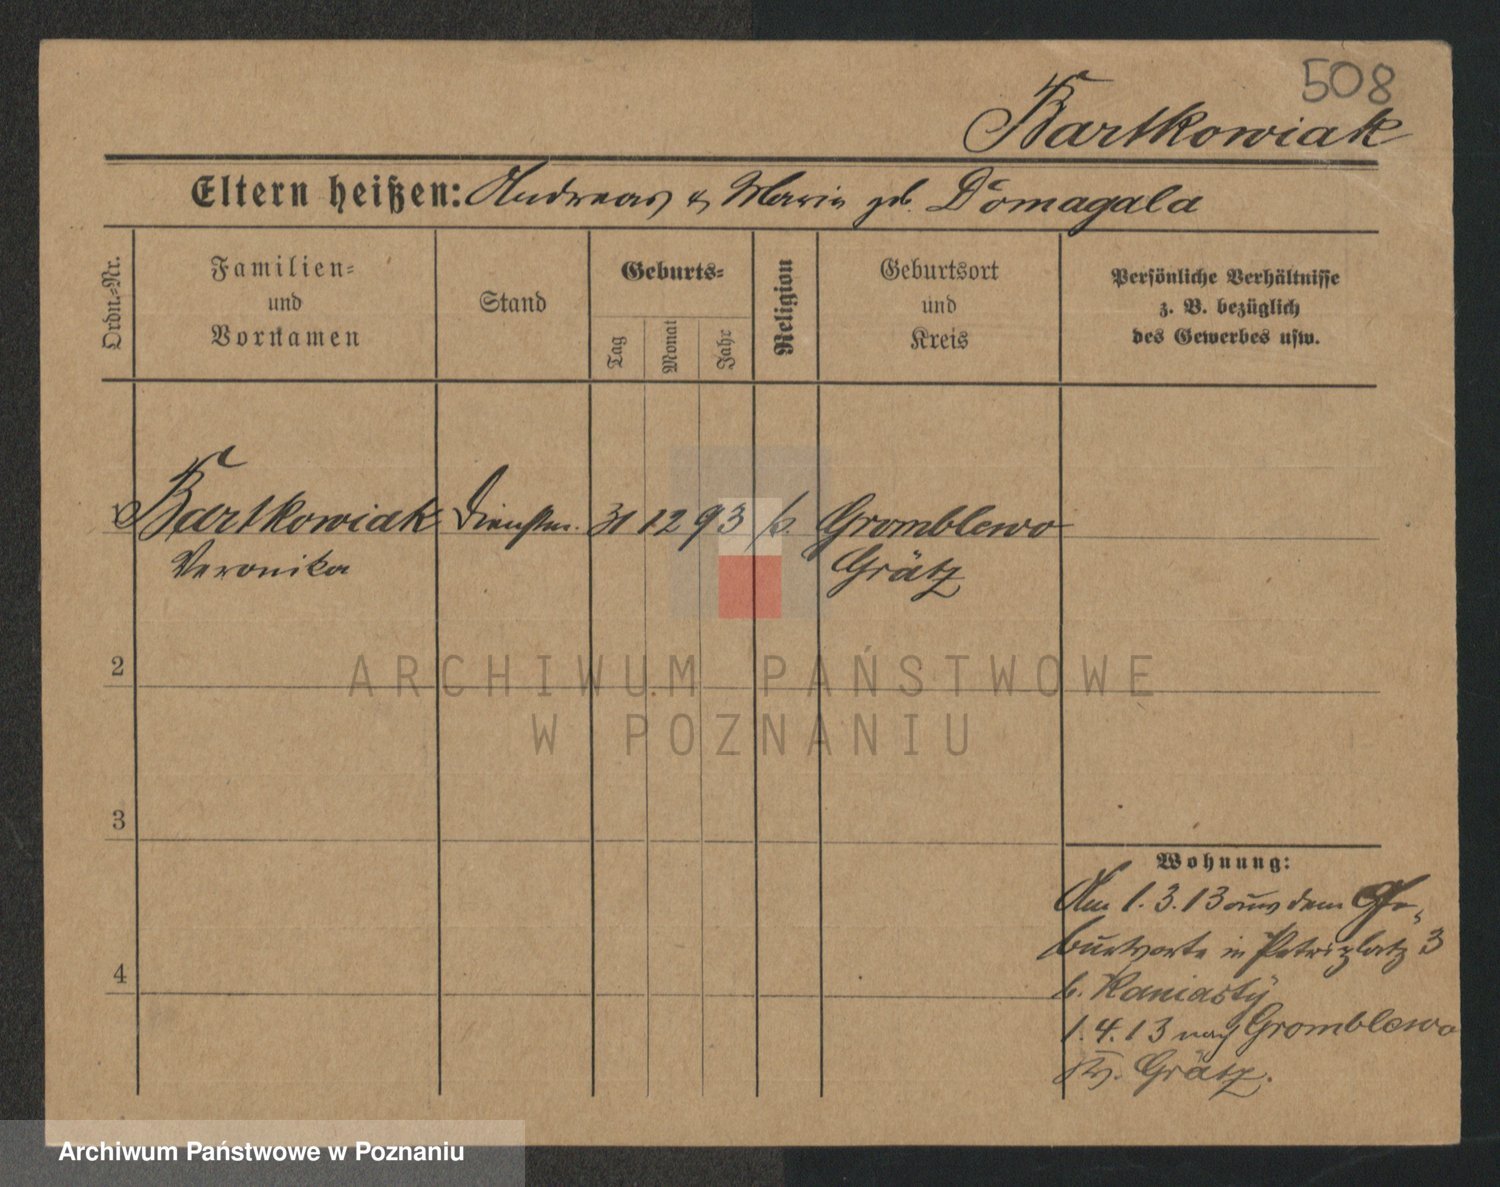 508
Bartkowiak
Eltern heißen: Andreas & Marie geb. Domagala
Ordn.=Nr.
Familien=
und
Vornamen
Stand
Geburts=
Tag
Monat
Jahr
Religion
Geburtsort
und
Kreis
Persönliche Verhältnisse
z. B. bezüglich
des Gewerbes usw.
Bartkowiak Dienstm. 31 12 93 k. Gromblewo
Veronika Grätz
2
3
4
Wohnung:
Am 1.3.13 aus dem Ge-
burtsorte in Petriplatz 3
b. Kaniasty
1.4.13 nach Gromblewo
Kr. Grätz.
ARCHIWUM PAŃSTWOWE
W POZNANIU
Archiwum Państwowe w Poznaniu